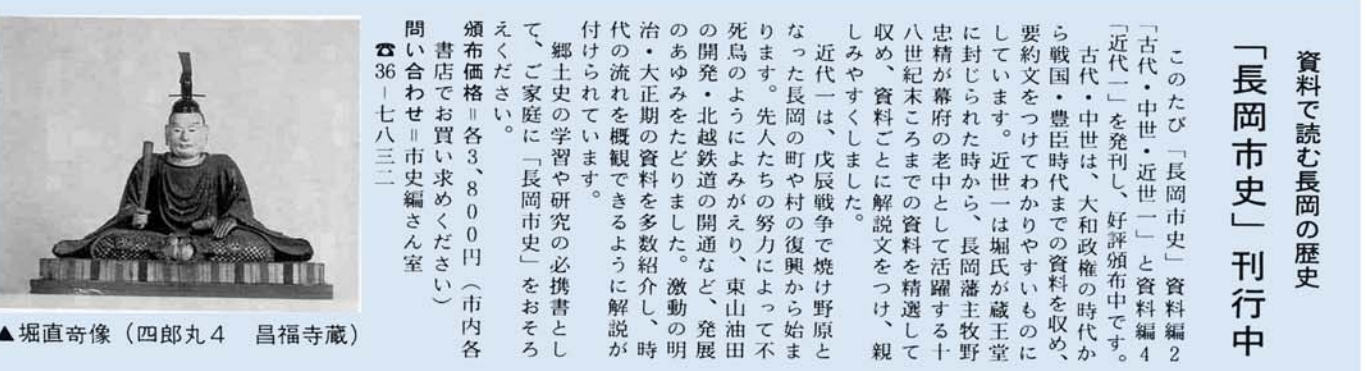 資料で読む長岡の歴史
「長岡市史」刊行中
このたび「長岡市史」資料編2
「古代・中世・近世一」と資料編4
「近代一」を発刊し、好評頒布中です。
古代・中世は、大和政権の時代か
ら戦国・豊臣時代までの資料を収め、
要約文をつけてわかりやすいものに
しています。近世一は堀氏が蔵王堂
に封じられた時から、長岡藩主牧野
忠精が幕府の老中として活躍する十
八世紀末ころまでの資料を精選して
収め、資料ごとに解説文をつけ、親
しみやすくしました。
近代一は、戊辰戦争で焼け野原と
なった長岡の町や村の復興から始ま
ります。先人たちの努力によって不
死鳥のようによみがえり、東山油田
の開発・北越鉄道の開通など、発展
のあゆみをたどりました。激動の明
治・大正期の資料を多数紹介し、時
代の流れを概観できるように解説が
付けられています。
郷土史の学習や研究の必携書とし
て、ご家庭に「長岡市史」をおそろ
えください。
頒布価格＝各3、800円（市内各
書店でお買い求めください）
問い合わせ＝市史編さん室
☎36－七八三二
▲堀直竒像（四郎丸4　昌福寺蔵）